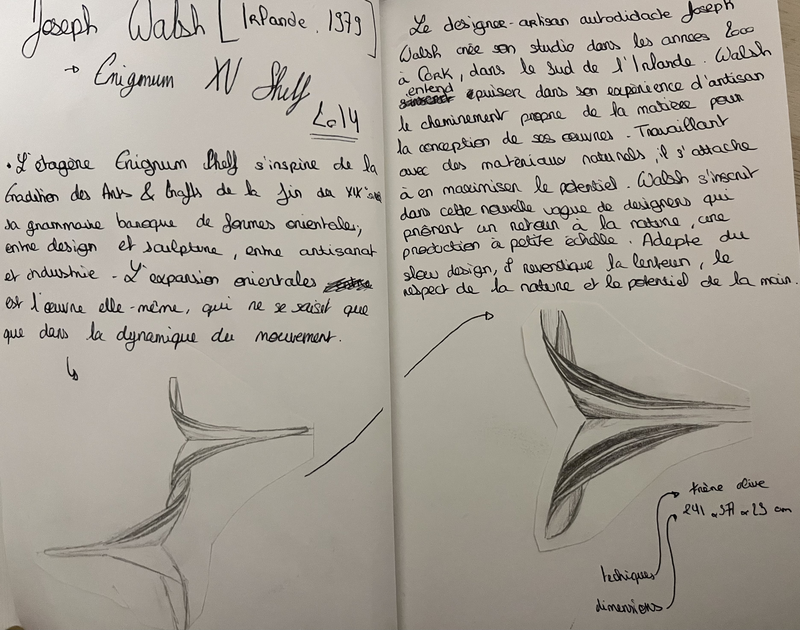 Joseph Walsh [Irlande, 1979]
→ Enigmum XV Shelf
2014
• L'étagère Enignum Shelf s'inspire de la
tradition des Arts & Crafts de la fin du XIXe
sa grammaire baroque de formes orientales,
entre design et sculpture, entre artisanat
et industrie - L'expansion orientales
est l'œuvre elle-même, qui ne se saisit que
que dans la dynamique du mouvement.
Le designer-artisan autodidacte Joseph
Walsh crée son studio dans les années 2000
à Cork, dans le sud de l'Irlande. Walsh
entend puiser dans son expérience d'artisan
le cheminement propre de la matière pour
la conception de ses œuvres - Travaillant
avec des matériaux naturels, il s'attache
à en maximiser le potentiel. Walsh s'inscrit
dans cette nouvelle vague de designers qui
prônent un retour à la nature, une
production à petite échelle. Adepte du
slow design, il revendique la lenteur, le
respect de la nature et le potentiel de la main.
frêne olive
241 x 37 x 29 cm
techiques
dimensions